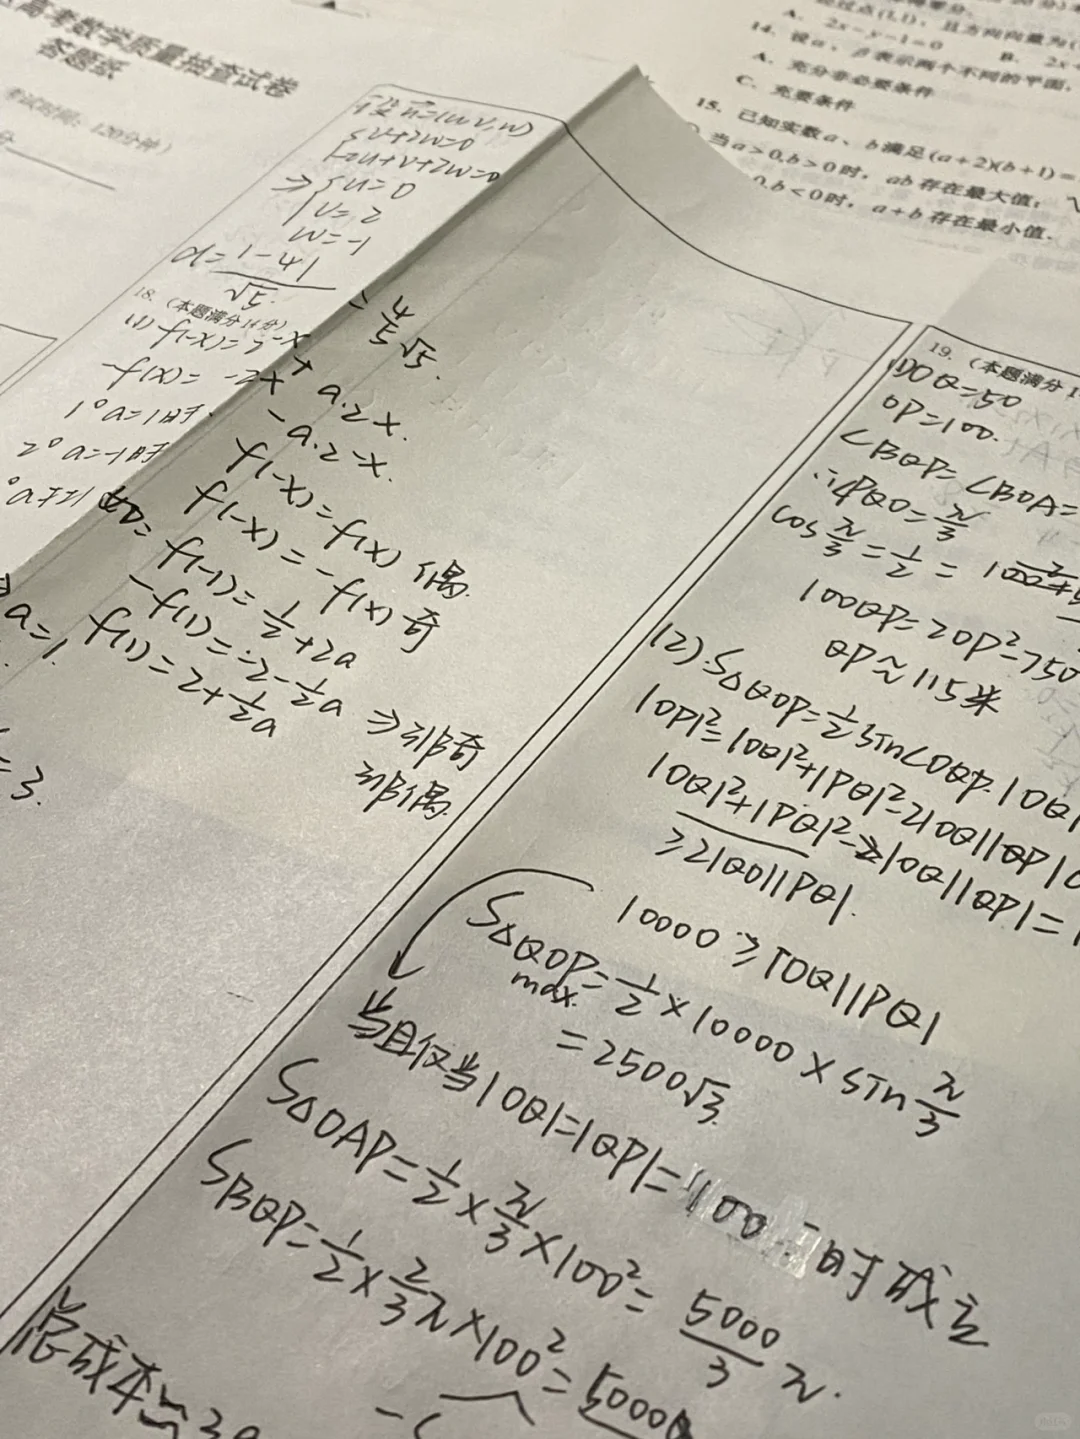 高考数学质量抽查试卷
答题纸
考试时间：120分钟）
A. 2x-y-1=0 B. 2x+
14. 设α、β表示两个不同的平面，
A. 充分非必要条件
C. 充要条件
15. 已知实数a、b满足(a+2)(b+1)=
当a>0,b>0时，ab存在最大值；
0,b<0时，a+b存在最小值.
设n=(u,v,w)
v+2w=0
u=0
v=2
w=-1
d=|-4|/√5
=4/5√5.
18.（本题满分14分）
(1) f(-x)=2-x+a·2x.
-f(x)=-2x-a·2-x.
1°a=1时 f(-x)=f(x) 偶.
2°a=-1时 f(-x)=-f(x) 奇
°a≠±1 f(-1)=1/2+2a
-f(1)=-2-1/2a
f(1)=2+1/2a
⇒非奇
非偶.
a=1.
=3.
19.（本题满分1
OQ=50
OP=100.
∠BQP=∠BOA=
∴∠PQO=π/3
cos π/3=1/2=
100QP=2QP²-750
QP≈115米
(2).S△QOP=1/2sin∠OQP·|OQ|
|OP|²=|OQ|²+|PQ|²-2|OQ||QP|
|OQ|²+|PQ|²-|OQ||QP|=
≥2|QO||PQ|.
10000≥|OQ||PQ|
S△QOP max.=1/2×10000×sin π/3
=2500√3.
当且仅当|OQ|=|QP|=100时成立
S△OAP=1/2×π/3×100²=5000/3π.
SBQP=1/2×2/3π×100²=
总成本≈